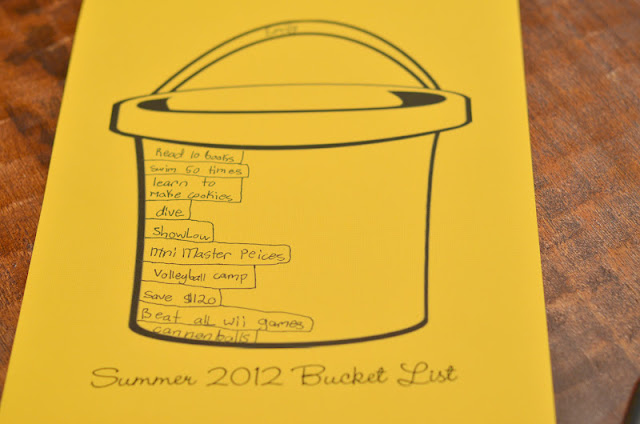 Read 10 books
Swim 50 times
learn to
Make cookies
dive
ShowLow
Mini Master Peices
Volleyball camp
Save $120
Beat all wii games
cannonballs
Summer 2012 Bucket List